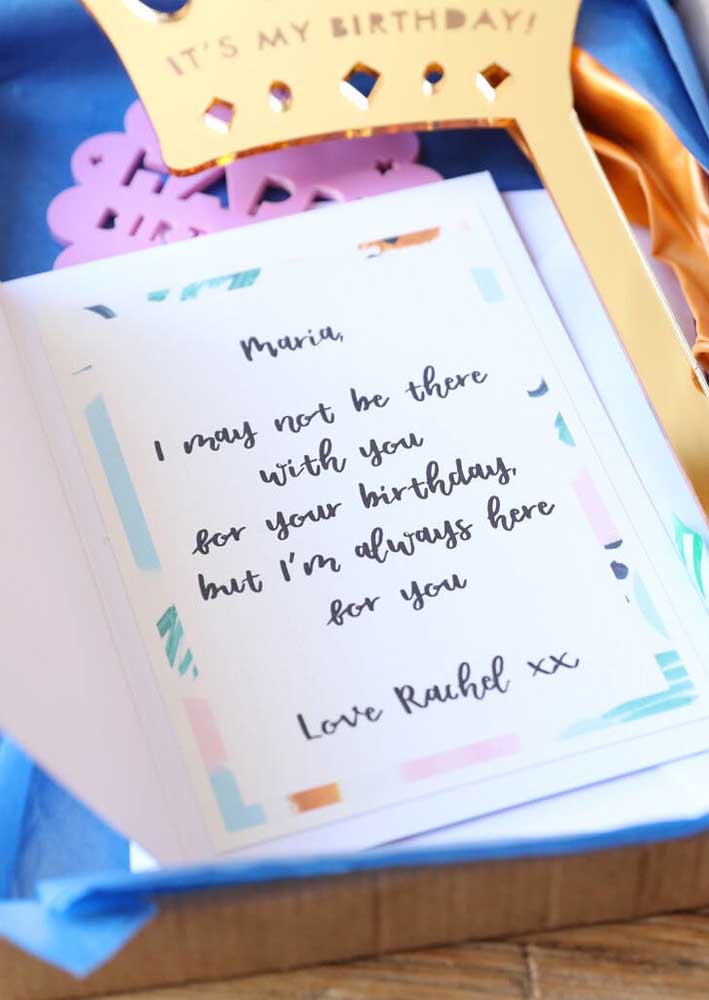 IT'S MY BIRTHDAY!
Maria,
I may not be there
with you
for your birthday,
but I'm always here
for you
Love Rachel xx